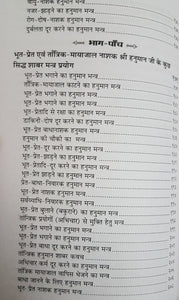 वायु-नाशक हनुमान मन्त्र
नजर-झाड़ने का हनुमान मन्त्र
रोग-दोष-नाशक हनुमान मन्त्र
दुर्बलता दूर करने का हनुमान मन्त्र
भाग-पाँच
भूत-प्रेत एवं तान्त्रिक-मायाजाल नाशक श्री हनुमान जी के कुछ
सिद्ध शाबर मन्त्र प्रयोग
भूत-प्रेत भगाने का हनुमान मन्त्र
तान्त्रिक मायाजाल काटने का हनुमान मन्त्र
भूत-प्रेत भगाने का हनुमान मन्त्र
भूत-प्रेतादि से रक्षा का हनुमान मन्त्र
डाकिनी-दोष दूर करने का हनुमान मन्त्र
भूत-प्रेत बाधानाशक हनुमान मन्त्र
हनुमान की चौकी का मन्त्र
भूत-प्रेत दूर करने का हनुमान मन्त्र
भूत-प्रेतादि झाड़ने का हनुमान मन्त्र
भूत-प्रेत नाशक हनुमान मन्त्र
प्रेत-बाधा-निवारक हनुमान मन्त्र
सर्वव्याधि-निवारक हनुमान मन्त्र
भूत-प्रेत बुलाने (बकुराने) का हनुमान मन्त्र
तान्त्रिक प्रयोगों (अभिचार) से मुक्ति हेतु मन्त्र
भूत-प्रेत झाड़ने का हनुमान मन्त्र
भूत-प्रेत बाधा दूर करने का हनुमान मन्त्र
भूत-प्रेतादि झाड़ने का हनुमान मन्त्र
तान्त्रिक हनुमान शाबर कवच
अभिचार कर्म दूर करने का हनुमान मन्त्र
तान्त्रिक मायाजाल वापिस भेजने को मन्त्र
बाधा जानने के लिए हनुमान मन्त्र
भूत-प्रेत नाशक हनुमान मन्त्र